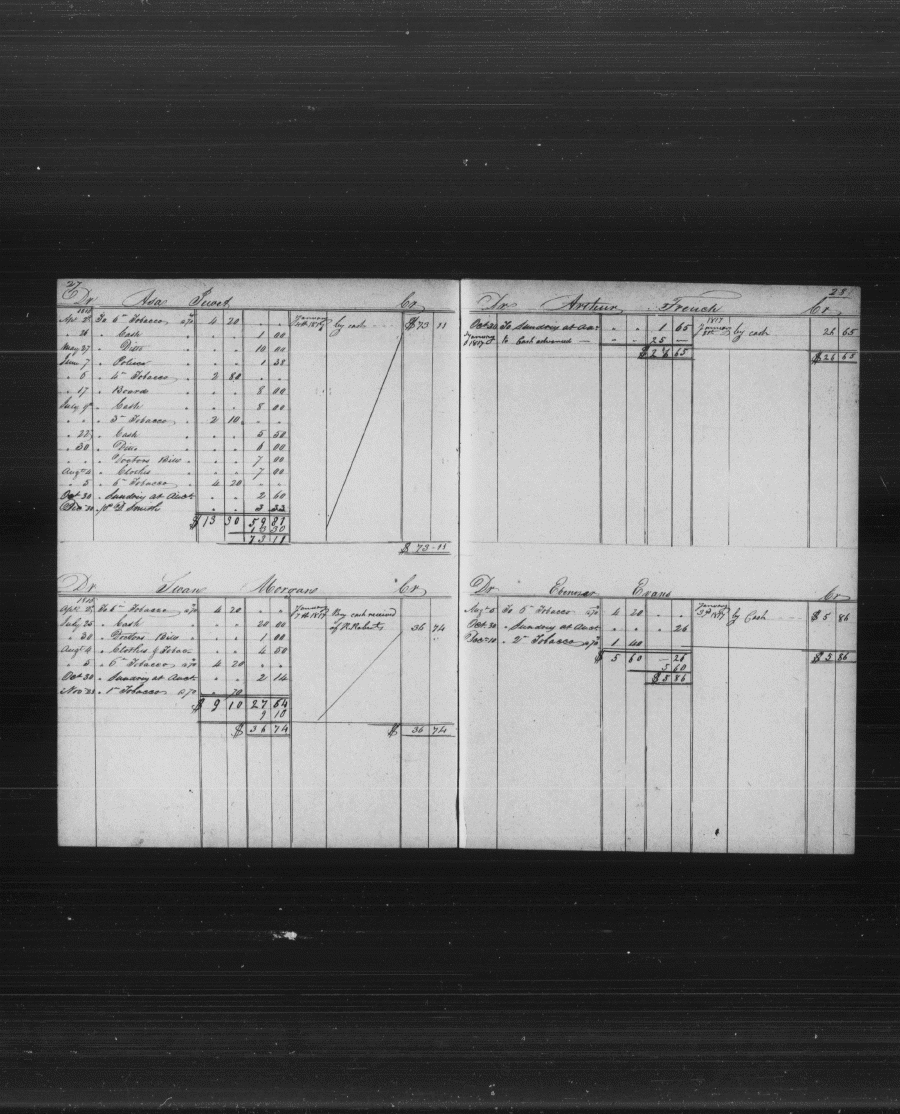 27
Dr Asa Swet Cr
1816
Apr 2d To 6 lb Tobacco a 70 4 20 January 4th 1817 by cash $73 11
" 26 " Cash 1 00
May 27 " Ditto 10 00
June 7 " Police 1 38
" 5 " 4 lb Tobacco 2 80
" 17 " Boards 8 00
July 9th " Cash 8 00
" " " 3 lb Tobacco 2 10
" 22 " Cash 5 50
" 30 " Ditto 6 00
" " " Doctors Bill 7 00
Augt 4 " Clothes 7 00
" 5 " 6 lb Tobacco 4 20
Oct 30 " Sundry at Auct 2 60
Dec 20 " D Smith 3 33
$ 13 30 59 81
13 30
73 11
$ 73-11
Dr Swan Morgans Cr
1816
Apr 2d To 6 lb Tobacco a 70 4 20 January 7th 1817 By cash received
July 25 " Cash 20 00 of R. Roberts 36 74
" 30 " Doctors Bill 1 00
Augt 4 " Clothes & Tobac 4 50
" 5 " 6 lb Tobacco a 70 4 20
Oct 30 " Sundry at Auct 2 14
Nov " 1 lb Tobacco a 70 " 70
$ 9 10 27 64
9 10
$ 36 74 $ 36 74
28
Dr Arthur French Cr
Oct 30 To Sundry at Auc 1 65 1817 January 8th by cash 26 65
January 1817 to Cash advanced 25 —
$ 26 65 $ 26 65
Dr Ebenezer Evans Cr
Aug 5 To 6 lb Tobacco a 70 4 20 January 3d 1817 by Cash $ 5 86
Oct 30 " Sundry at Auct " 26
Dec 10 " 2 lb Tobacco a 70 1 40
$ 5 60 — 26 $ 5 86
5 60
$ 5 86